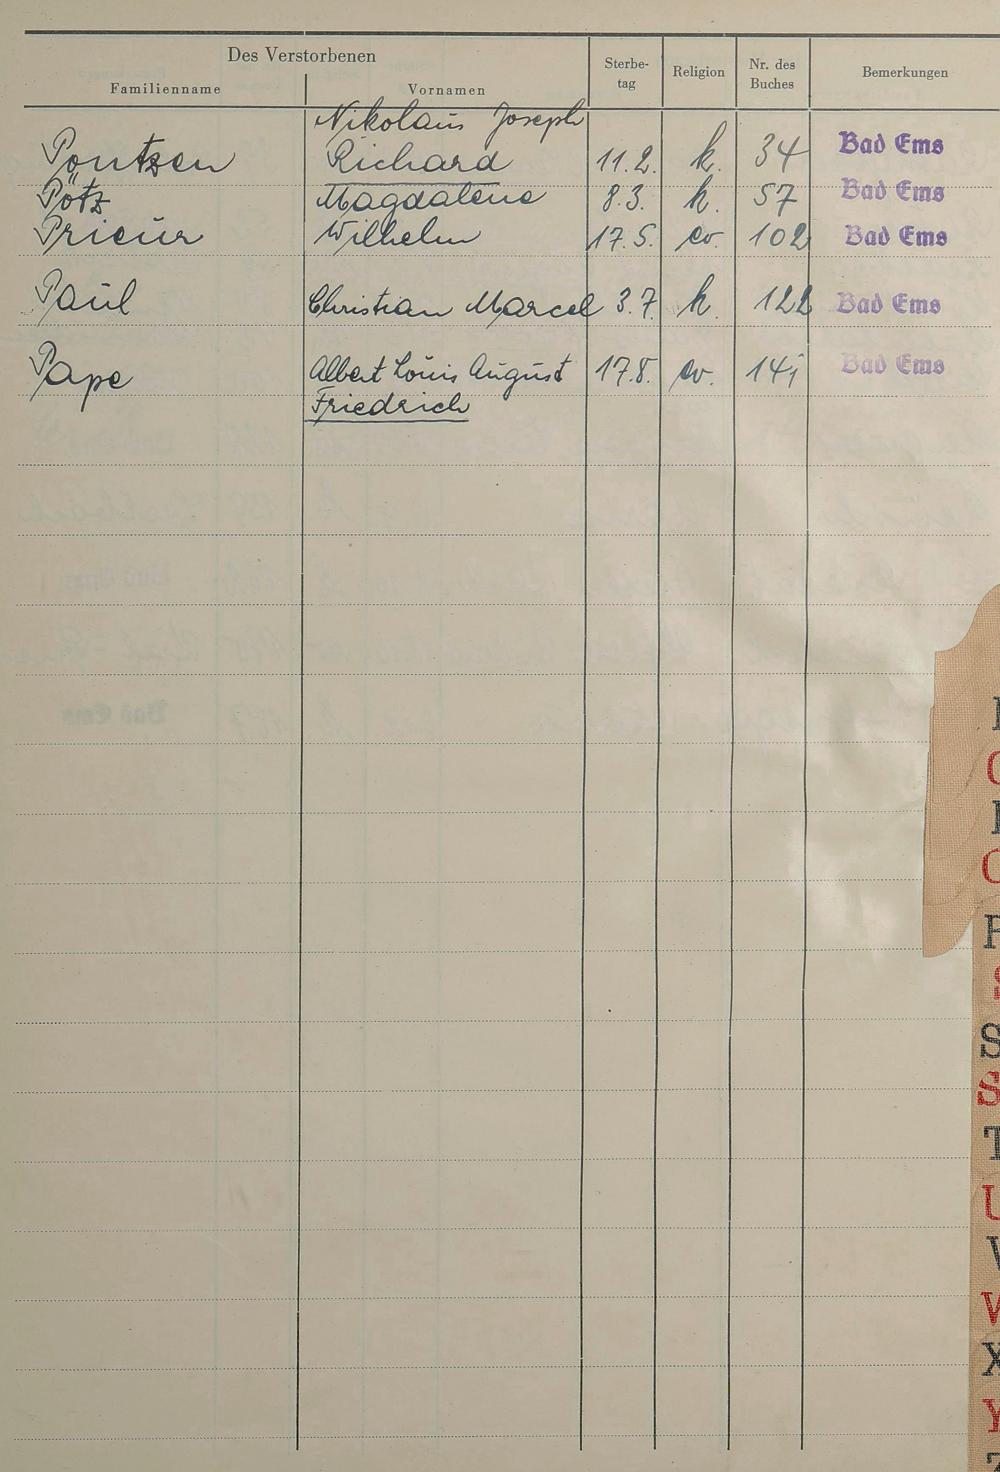 Des Verstorbenen
Familienname Vornamen Sterbe-tag Religion Nr. des Buches Bemerkungen
Nikolaus Joseph
Pontzen Richard 11.2. k. 34 Bad Ems
Pötz Magdalene 8.3. k. 57 Bad Ems
Prieur Wilhelm 17.5. ev. 102 Bad Ems
Paul Christian Marcel 3.7. k. 122 Bad Ems
Pape Albert Louis August 17.8. ev. 141 Bad Ems
Friedrich
S
S
T
U
V
W
X
Y
Z